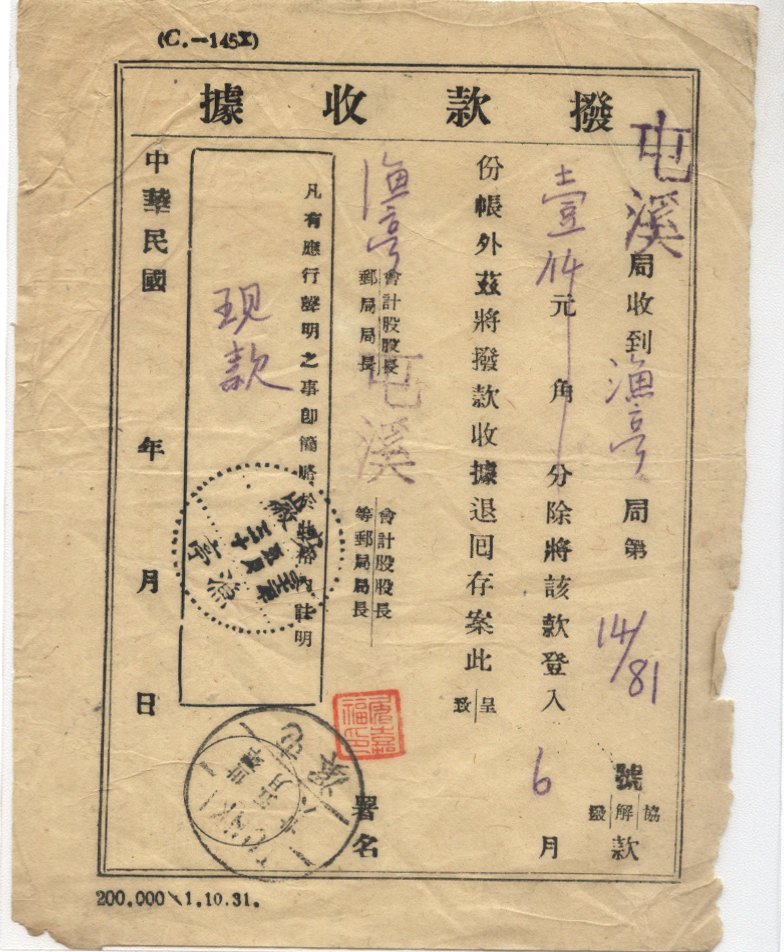 (C.—145X)
撥款收據
屯溪局收到漁亭局第14/81號協解撥款
壹仟元角分除將該款登入6月
份帳外茲將撥款收據退回存案此呈致
漁亭會計股股長郵局局長屯溪會計股股長等郵局局長署名
凡有應行聲明之事即簡略於此格內註明
現款
中華民國年月日
漁亭
屯溪
200.000\1.10.31.